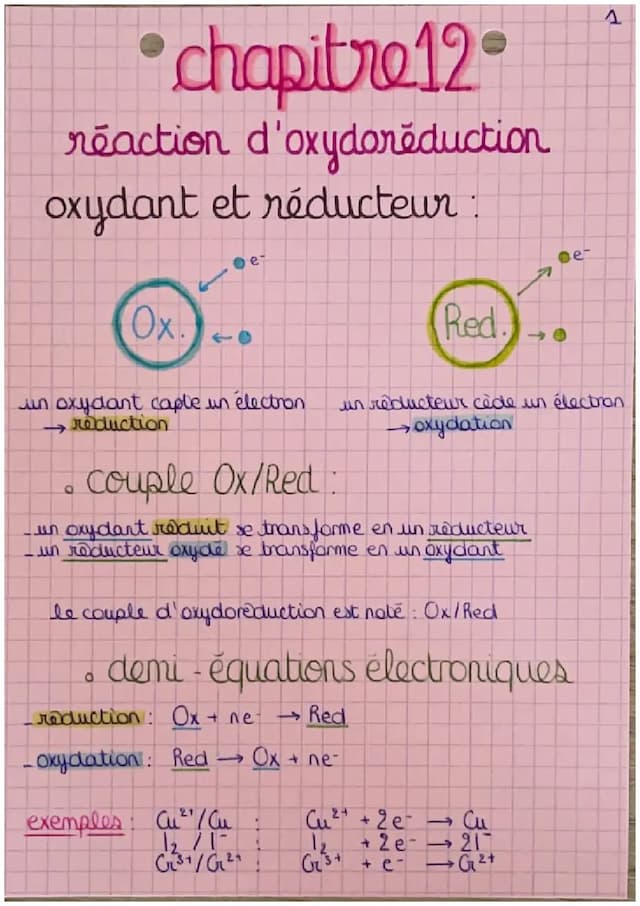 1
chapitre 12
réaction d'oxydoréduction
oxydant et réducteur :
e⁻ e⁻
Ox. Red.
un oxydant capte un électron un réducteur cède un électron
→ réduction → oxydation
• couple Ox/Red :
- un oxydant réduit se transforme en un réducteur
- un réducteur oxydé se transforme en un oxydant
le couple d'oxydoréduction est noté : Ox/Red
• demi-équations électroniques
- réduction : Ox + ne⁻ → Red
- oxydation : Red → Ox + ne⁻
exemples : Cu²⁺/Cu : Cu²⁺ + 2e⁻ → Cu
I₂ / I⁻ : I₂ + 2e⁻ → 2I⁻
Cr³⁺/Cr²⁺ : Cr³⁺ + e⁻ → Cr²⁺